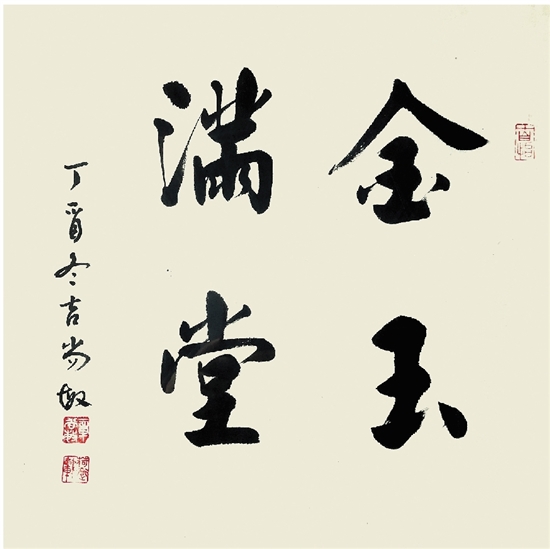 金玉
滿堂
丁酉冬吉尚敏